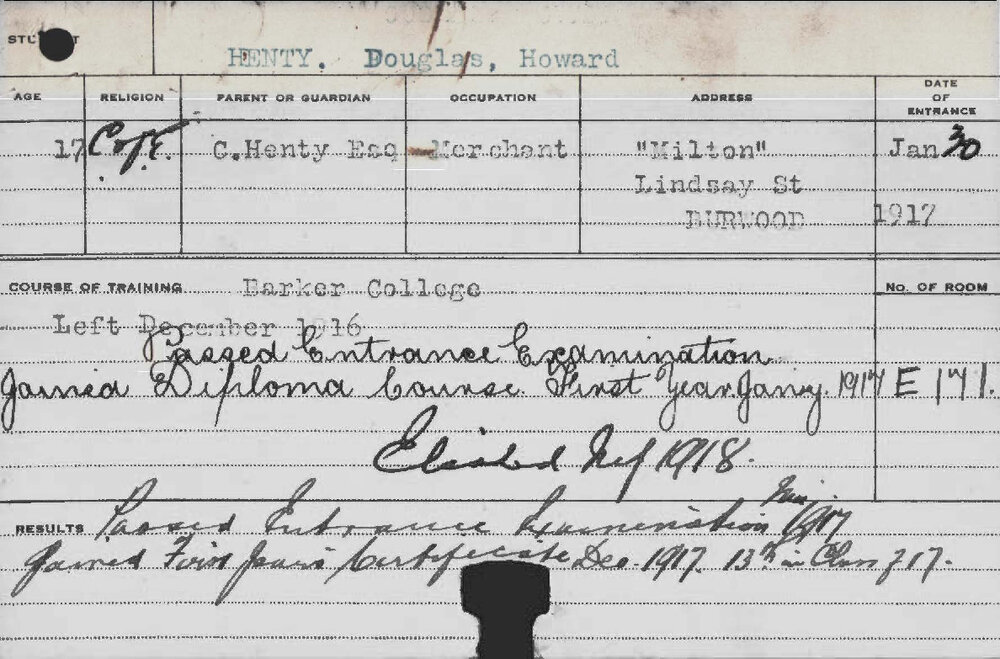 STUDENT
HENTY. Douglas, Howard
AGE RELIGION PARENT OR GUARDIAN OCCUPATION ADDRESS DATE OF ENTRANCE
17 C of E. C. Henty Esq Merchant "Milton" Jan 30
Lindsay St
BURWOOD 1917
COURSE OF TRAINING Barker College No. OF ROOM
Left December 1916
Passed Entrance Examination
Joined Diploma Course First Year Jany. 1917 E 171.
1918.
RESULTS Passed Entrance Examination Jan. 1917
Gained First Years Certificate Dec. 1917. 13th in Class of 17.